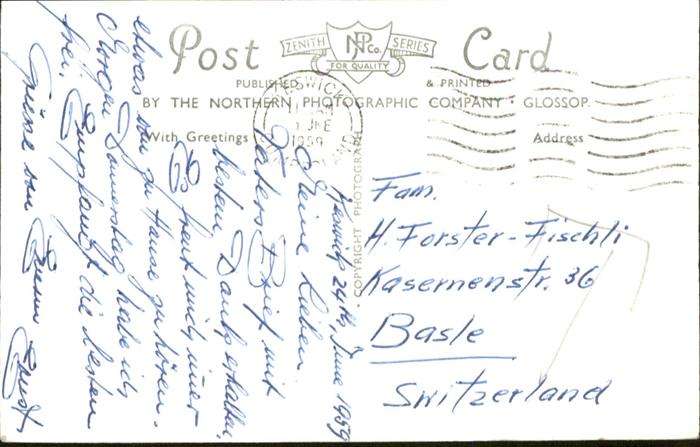 Post Card
ZENITH SERIES
NPCo.
FOR QUALITY
PUBLISHED & PRINTED
BY THE NORTHERN PHOTOGRAPHIC COMPANY · GLOSSOP.
With Greetings
Address
KESWICK
JNE
1959
COPYRIGHT PHOTOGRAPH
Keswick 24th, June 1959
Meine Lieben
Vaters Brief mit
bestem Dank erhalten,
Es freut mich immer
etwas von zu Hause zu hören.
Morgen Donnerstag habe ich
frei. Empfangt die besten
Grüsse von Eurem Ernst.
Fam.
H. Forster-Fischli
Kasernenstr. 36
Basle
Switzerland